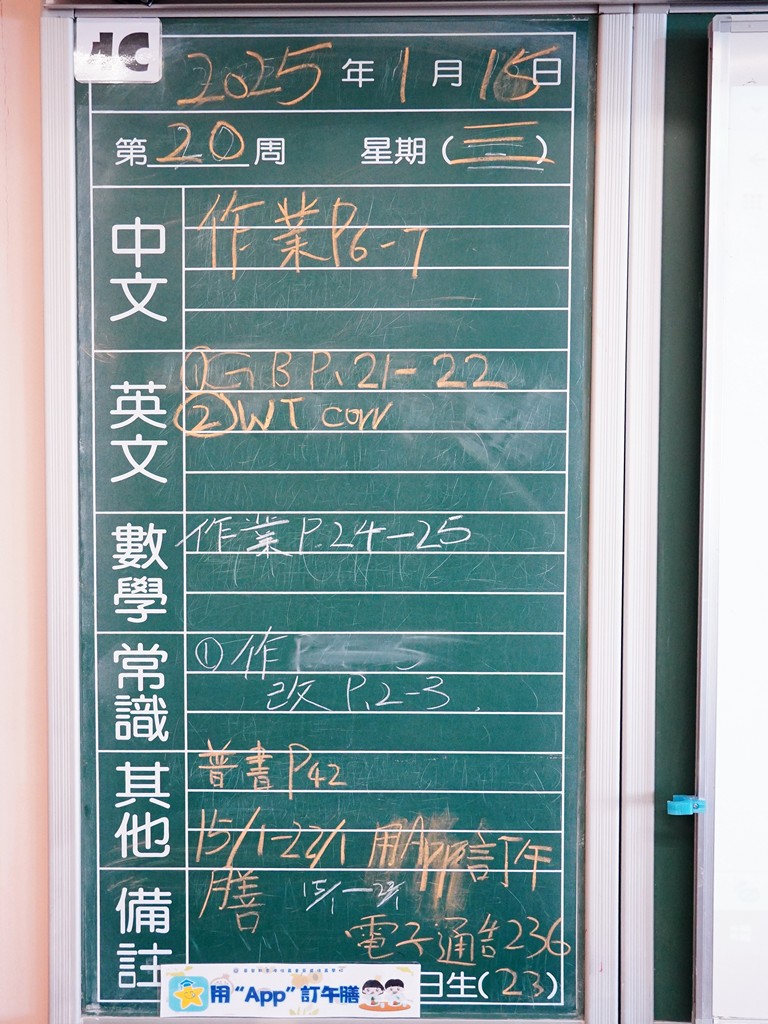 1C
2025年1月15日
第20周 星期(三)
中文
作業P6-7
英文
①GB P.21-22
②WT corr
數學
作業P.24-25
常識
①作
改P.2-3
其他
普書P42
15/1-22/1 用App訂午
備註
膳 15/1-22/1
電子通告236
用“App”訂午膳
日生(23)